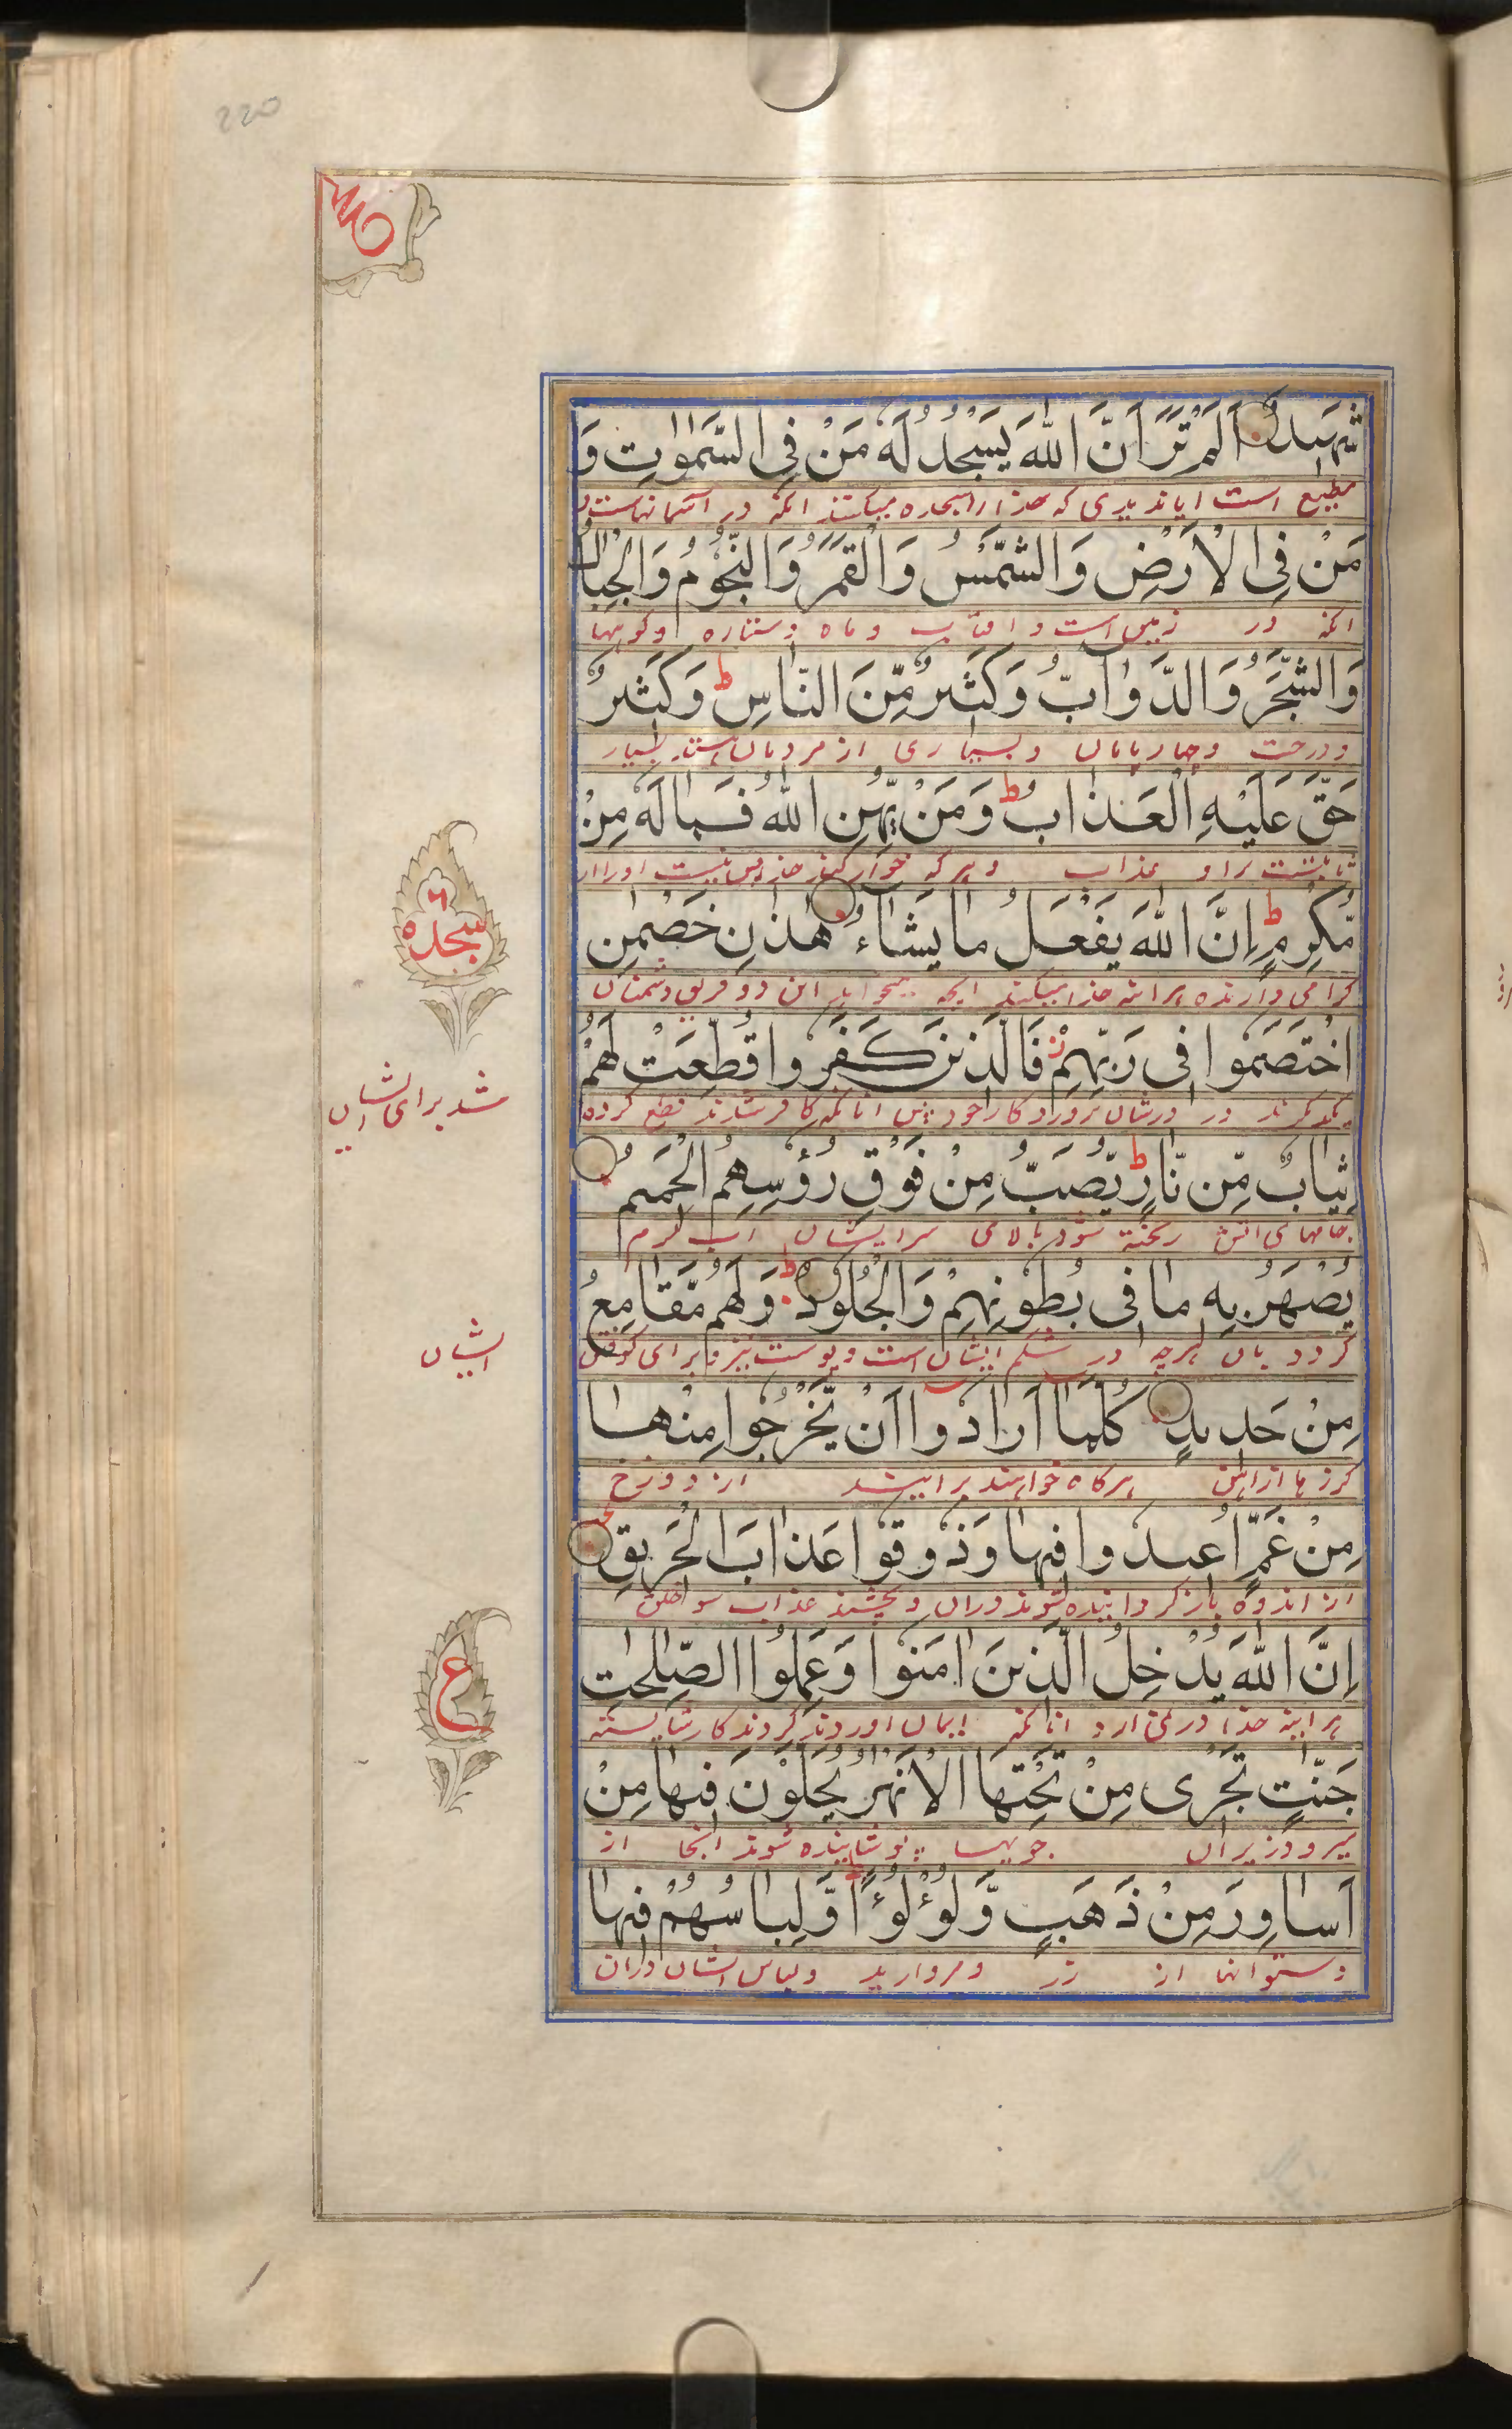 220
شَهِيدٌ اَلَمْ تَرَ اَنَّ اللّٰهَ يَسْجُدُ لَهٗ مَنْ فِى السَّمٰوٰتِ وَ
مطیع است ایا ندیدی که خدا را سجده میکنند انکه در آسمانهاست و
مَنْ فِى الْاَرْضِ وَالشَّمْسُ وَالْقَمَرُ وَالنُّجُوْمُ وَالْجِبَالُ
انکه در زمین است و افتاب و ماه و ستاره و کوهها
وَالشَّجَرُ وَالدَّوَآبُّ وَكَثِيرٌ مِّنَ النَّاسِ ط وَكَثِيرٌ
و درخت و چارپایان و بسیاری از مردمان بسیار
حَقَّ عَلَيْهِ الْعَذَابُ ط وَمَنْ يُّهِنِ اللّٰهُ فَمَا لَهٗ مِنْ
براو عذاب و هر که خوار کند خدا پس نیست او را از
مُّكْرِمٍ ط اِنَّ اللّٰهَ يَفْعَلُ مَا يَشَآءُ هٰذٰنِ خَصْمٰنِ
کرامی دارنده هراینه خدا میکند انچه میخواهد این دو فریق دشمنان
اخْتَصَمُوْا فِى رَبِّهِمْ ز فَالَّذِينَ كَفَرُوْا قُطِّعَتْ لَهُمْ
در پرورد کار خود پس انانکه کافر شدند قطع کرده
شد برای ایشان
ثِيَابٌ مِّنْ نَّارٍ ط يُصَبُّ مِنْ فَوْقِ رُؤُسِهِمُ الْحَمِيمُ
جامهای اتش ریخته شود بالای سر ایشان آب کرم
يُصْهَرُ بِهٖ مَا فِى بُطُوْنِهِمْ وَالْجُلُوْدُ ط وَلَهُمْ مَّقَامِعُ
کردد بان هرچه در شکم ایشان است و پوست نیز و برای کوفتن
ایشان
مِنْ حَدِيدٍ كُلَّمَآ اَرَادُوْٓا اَنْ يَّخْرُجُوْا مِنْهَا
کرزها از اهن هرکاه خواهند برایند از دوزخ
مِنْ غَمٍّ اُعِيدُوْا فِيهَا وَذُوْقُوْا عَذَابَ الْحَرِيقِ
از اندوه باز کردانیده شوند دران و بچشند عذاب سوختن
اِنَّ اللّٰهَ يُدْخِلُ الَّذِينَ اٰمَنُوْا وَعَمِلُوا الصّٰلِحٰتِ
هراینه خدا درمی ارد انانکه ایمان اوردند و کردند کار شایسته
جَنّٰتٍ تَجْرِى مِنْ تَحْتِهَا الْاَنْهٰرُ يُحَلَّوْنَ فِيهَا مِنْ
میرود زیر ان جویها پوشانیده شوند انجا از
اَسَاوِرَ مِنْ ذَهَبٍ وَّلُؤْلُؤًا ط وَلِبَاسُهُمْ فِيهَا
دستوانها از زر و مروارید و لباس ایشان دران
٦
سجده
ع